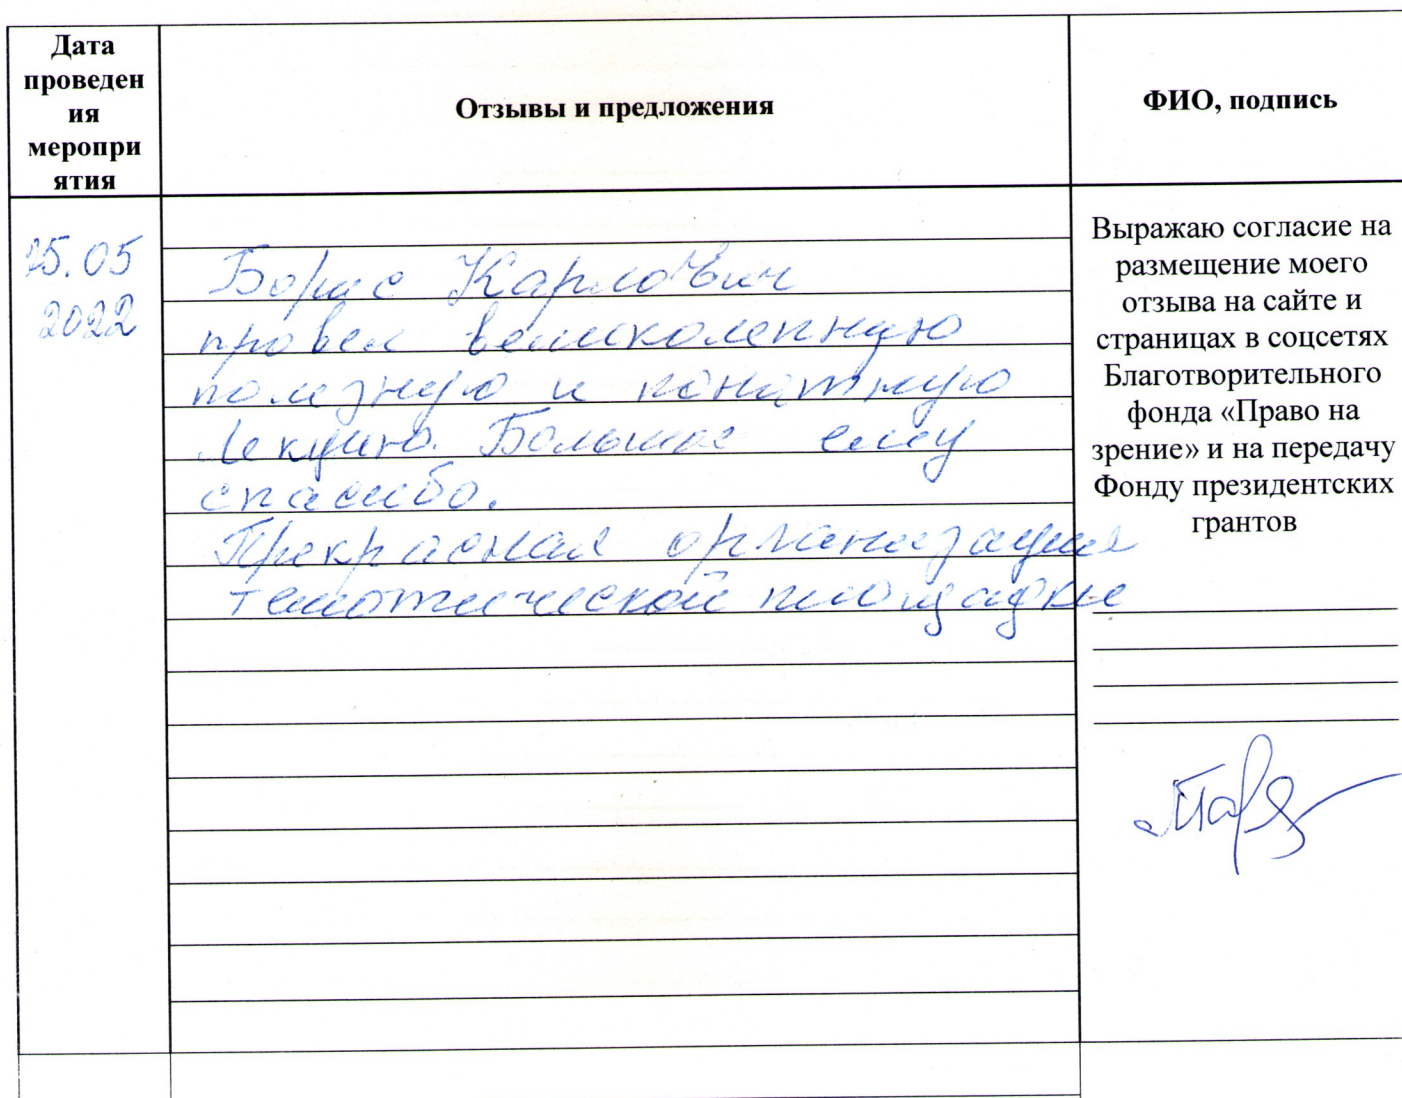 Дата
проведен
ия
меропри
ятия
Отзывы и предложения
ФИО, подпись
25.05
2022
Борис Карлович
провел великолепную
полезную и понятную
лекцию. Большое ему
спасибо.
Прекрасная организация
тематической площадки
Выражаю согласие на
размещение моего
отзыва на сайте и
страницах в соцсетях
Благотворительного
фонда «Право на
зрение» и на передачу
Фонду президентских
грантов